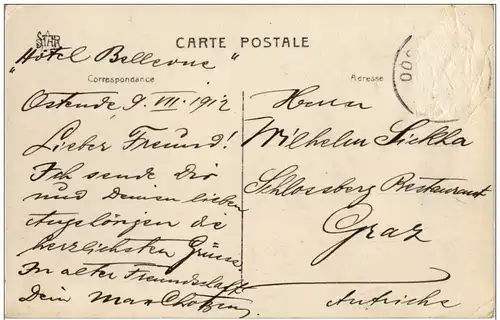 STAR
CARTE POSTALE
"Hôtel Bellevue"
Correspondance
Adresse
Ostende, 9. VII. 1912
Lieber Freund!
Ich sende Dir
und Deinen lieben
Angehörigen die
herzlichsten Grüsse.
In alter Freundschaft
Dein Max
Herrn
Wilhelm Sickha
Schlossberg Restaurant
Graz
Autriche